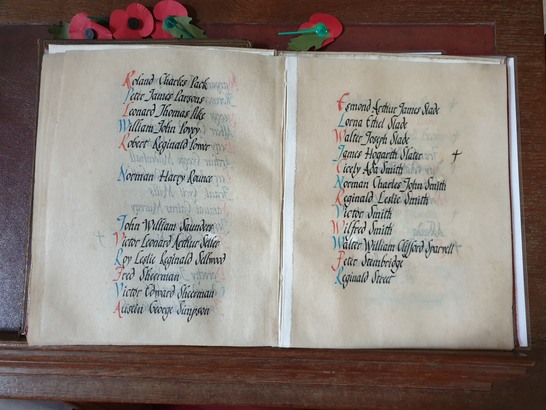 Roland Charles Pack
Peter James Parsons
Leonard Thomas
William John
Robert Reginald Power
Norman Harry Rounce
John William Saunders
Victor Leonard Arthur Seller
Roy Leslie Reginald Sellwood
Fred Sheerman
Victor Edward Sheerman
Austin George Simpson
Esmond Arthur James Slade
Lorna Ethel Slade
Walter Joseph Slade
James Hogarth Slater
Cicely Ada Smith
Norman Charles John Smith
Reginald Leslie Smith
Victor Smith
Wilfred Smith
Walter William Clifford Sparvell
Peter Stanbridge
Reginald Street